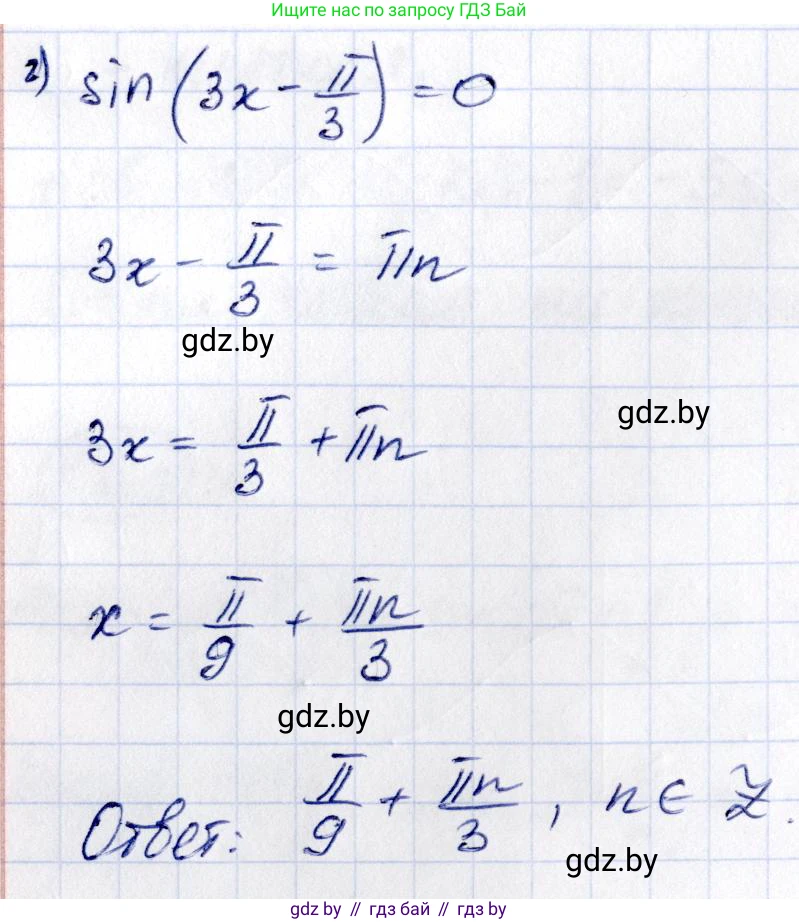 Ищите нас по запросу ГДЗ Бай
г) sin(3x - π/3) = 0
3x - π/3 = πn
gdz.by
gdz.by
3x = π/3 + πn
x = π/9 + πn/3
gdz.by
Ответ: π/9 + πn/3, n ∈ Z.
gdz.by
gdz.by // гдз бай // гдз by